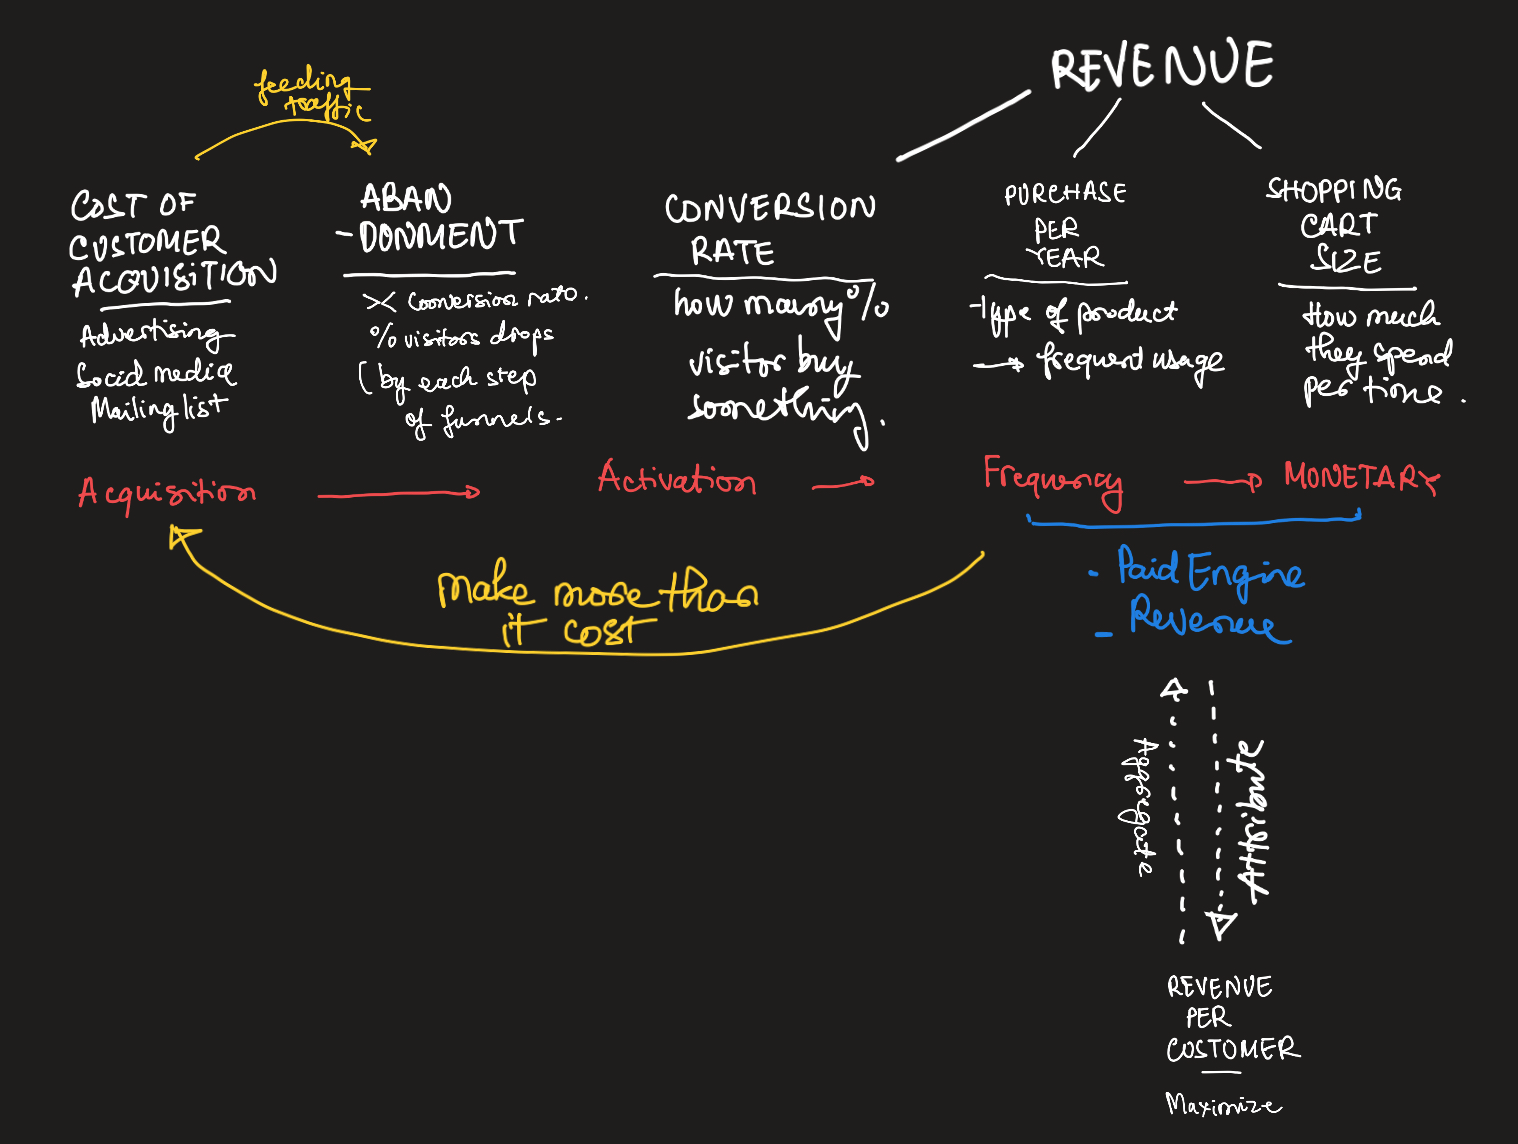 REVENUE
feeding
traffic
COST OF
CUSTOMER
ACQUISITION
Advertising
Social media
Mailing list
ABAN
-DONMENT
>< Conversion rate.
% visitors drops
( by each step
of funnels-
CONVERSION
RATE
how many %
visitor buy
something.
PURCHASE
PER
YEAR
Type of product
→ frequent usage
SHOPPING
CART
SIZE
How much
they spend
per time.
Acquisition → Activation → Frequency → MONETARY
make more than
it cost
- Paid Engine
- Revenue
Aggregate
Attribute
REVENUE
PER
CUSTOMER
Maximize